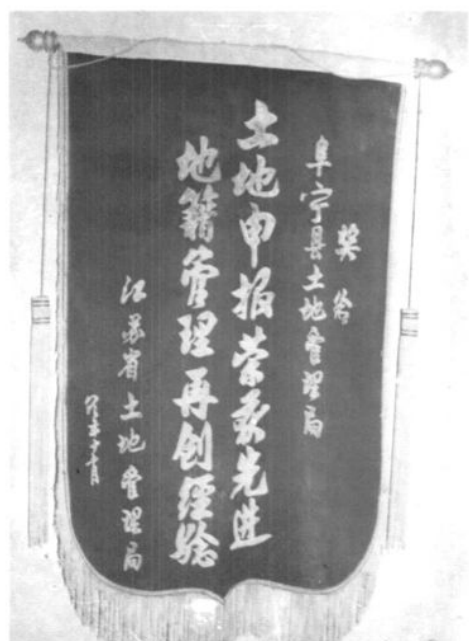 奖给
阜宁县土地管理局
土地申报荣获先进
地籍管理再创经验
江苏省土地管理局